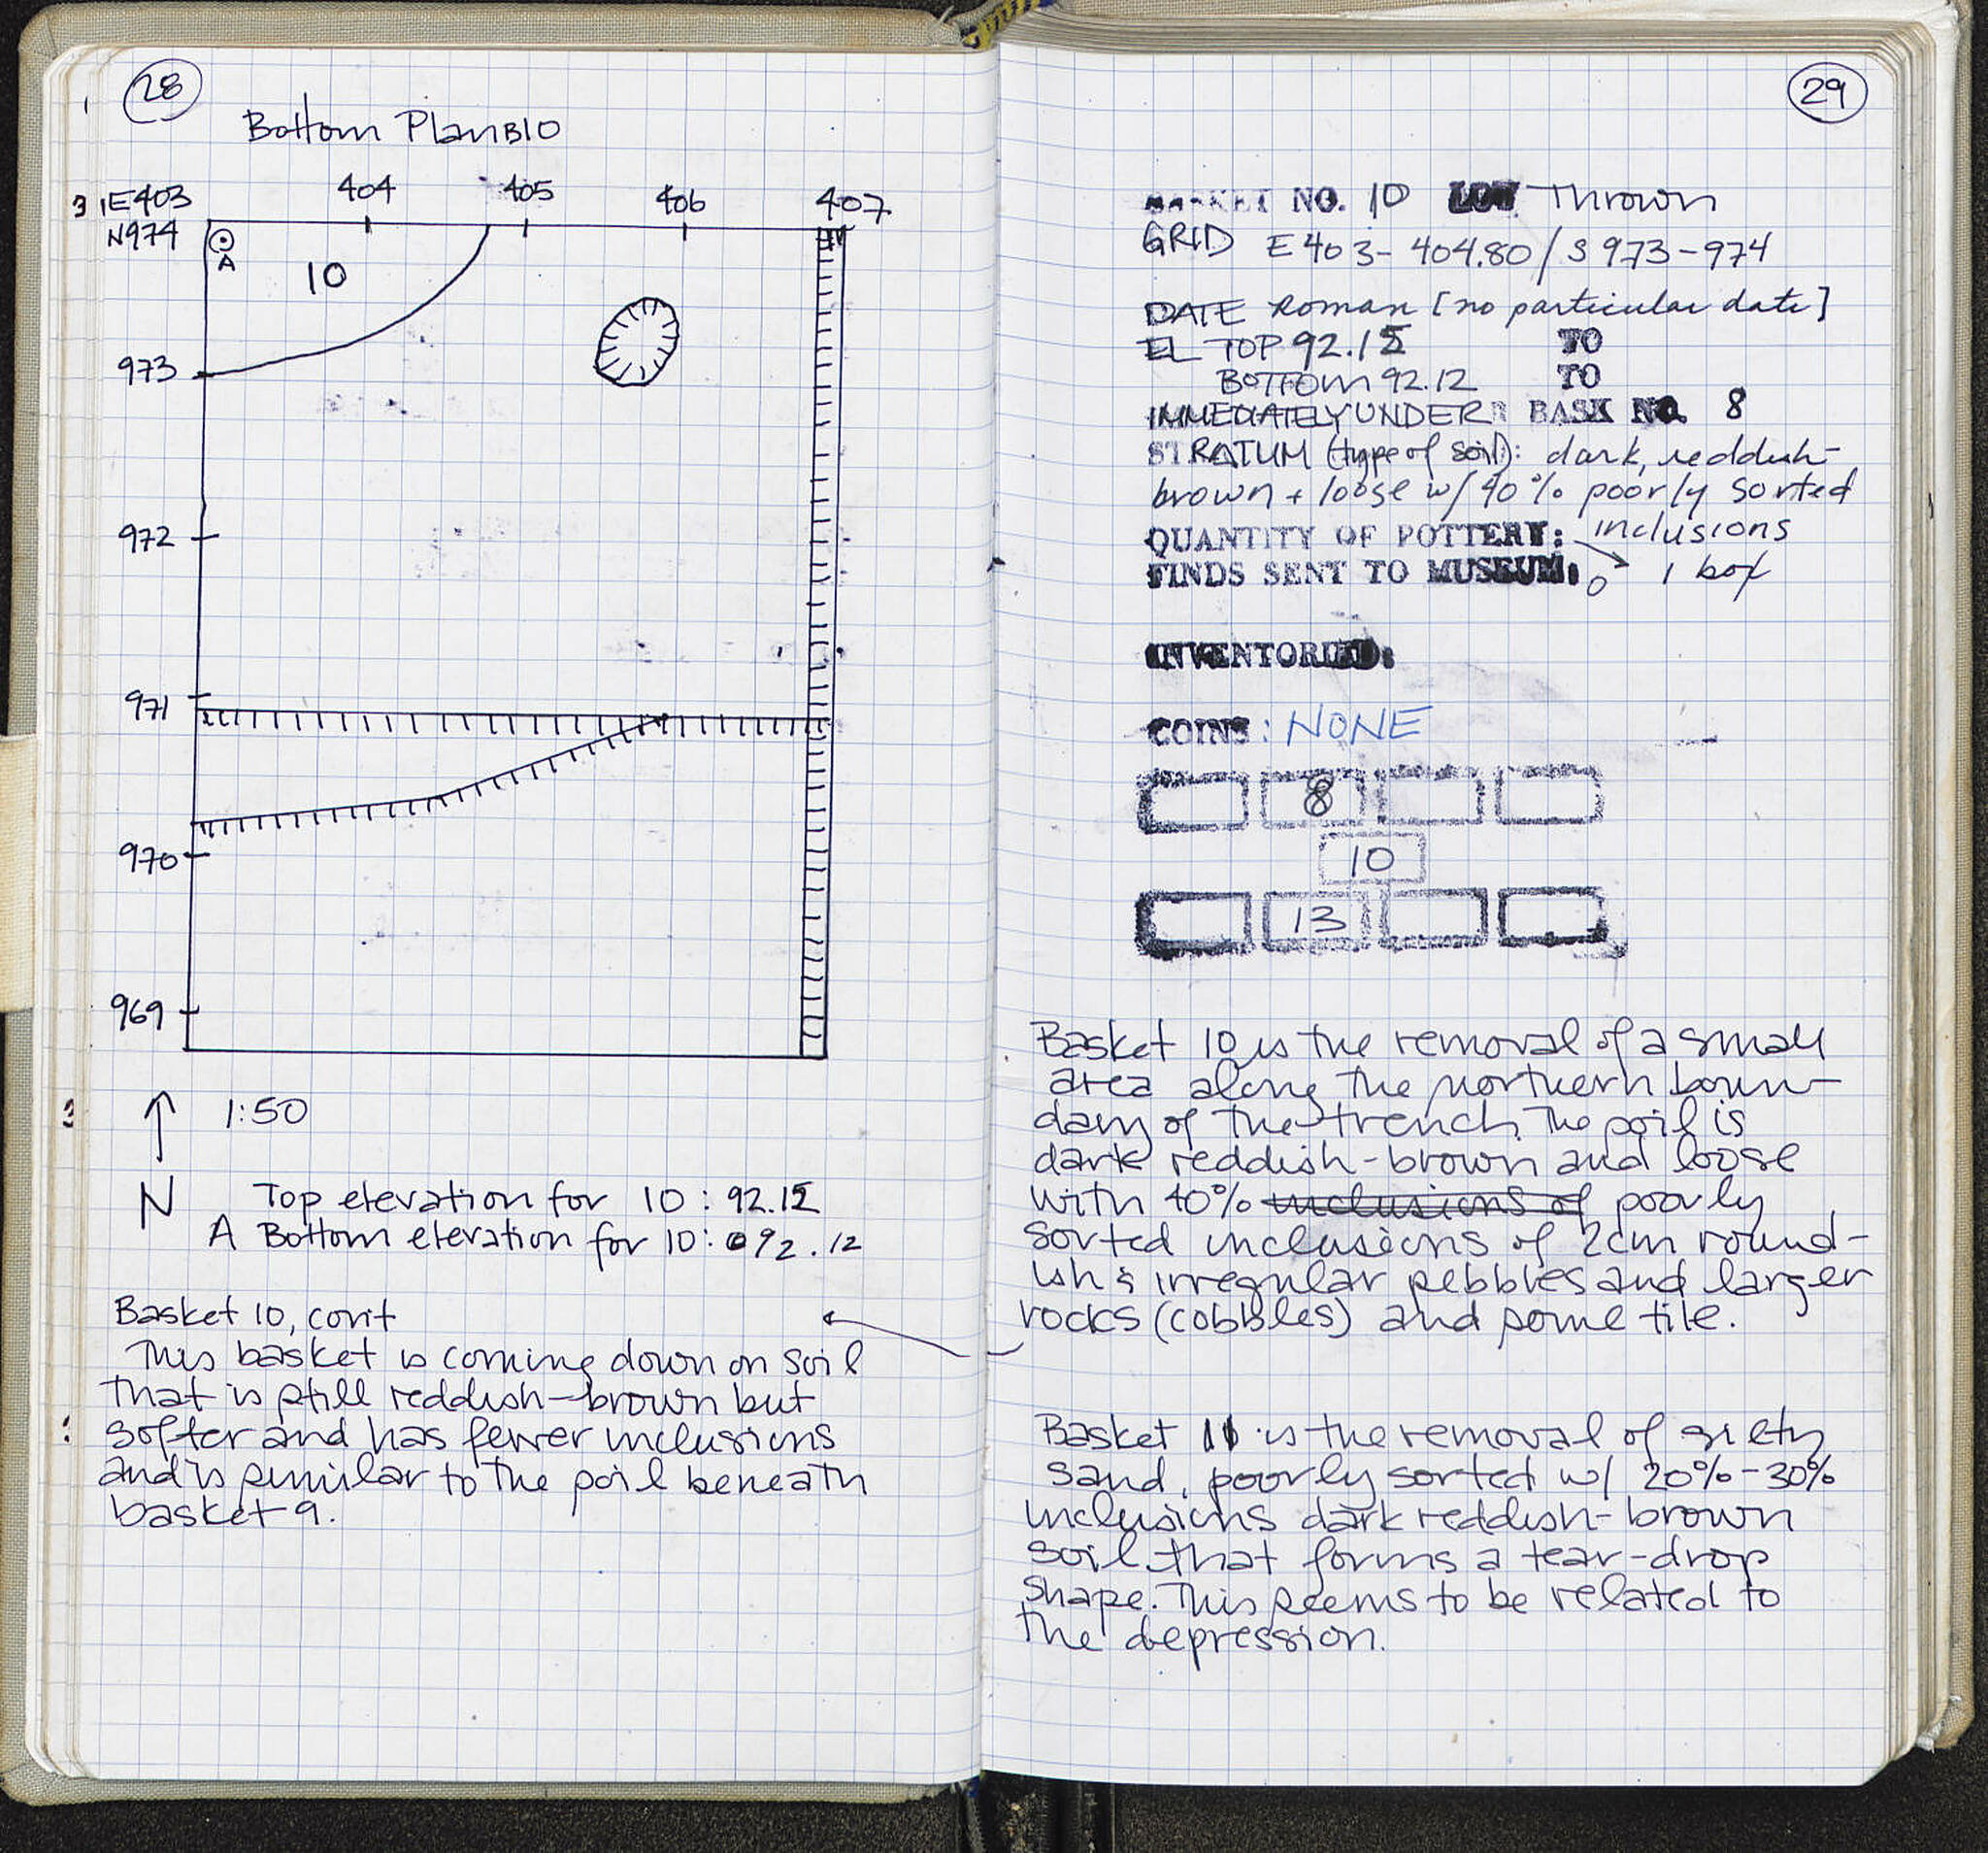 28
Bottom Plan B10
E403 404 405 406 407
N974
A
10
973
972
971
970
969
1:50
N
Top elevation for 10: 92.15
A Bottom elevation for 10: 92.12
Basket 10, con't
This basket is coming down on soil
that is still reddish-brown but
softer and has fewer inclusions
and is similar to the soil beneath
basket 9.
29
BASKET NO. 10 Thrown
GRID E403-404.80/S973-974
DATE Roman [no particular date]
EL TOP 92.15 TO
BOTTOM 92.12 TO
IMMEDIATELY UNDER BASK NO. 8
STRATUM (type of soil): dark, reddish-
brown + loose w/ 40% poorly sorted
inclusions
QUANTITY OF POTTERY: 1 box
FINDS SENT TO MUSEUM: 0
INVENTORIED:
COINS: NONE
8
10
13
Basket 10 is the removal of a small
area along the northern boun-
dary of the trench. The soil is
dark reddish-brown and loose
with 40% inclusions of poorly
sorted inclusions of 2cm round-
ish & irregular pebbles and larger
rocks (cobbles) and some tile.
Basket 11 is the removal of silty
sand, poorly sorted w/ 20%-30%
inclusions dark reddish-brown
soil that forms a tear-drop
shape. This seems to be related to
the depression.